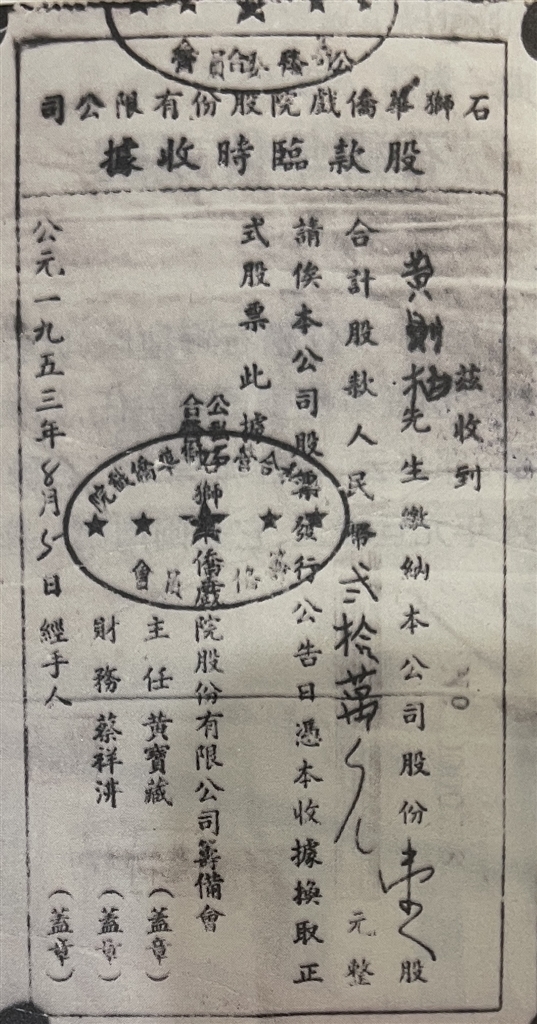 石獅華僑戲院股份有限公司
股款臨時收據
茲收到
黃 先生繳納本公司股份 股
合計股款人民幣弍拾萬 元整
請俟本公司股票發行公告日憑本收據換取正
式股票此據
公私合營石獅華僑戲院股份有限公司籌備會
主任 黃寶藏 (蓋章)
財務 蔡祥汫 (蓋章)
公元一九五三年8月5日 經手人 (蓋章)